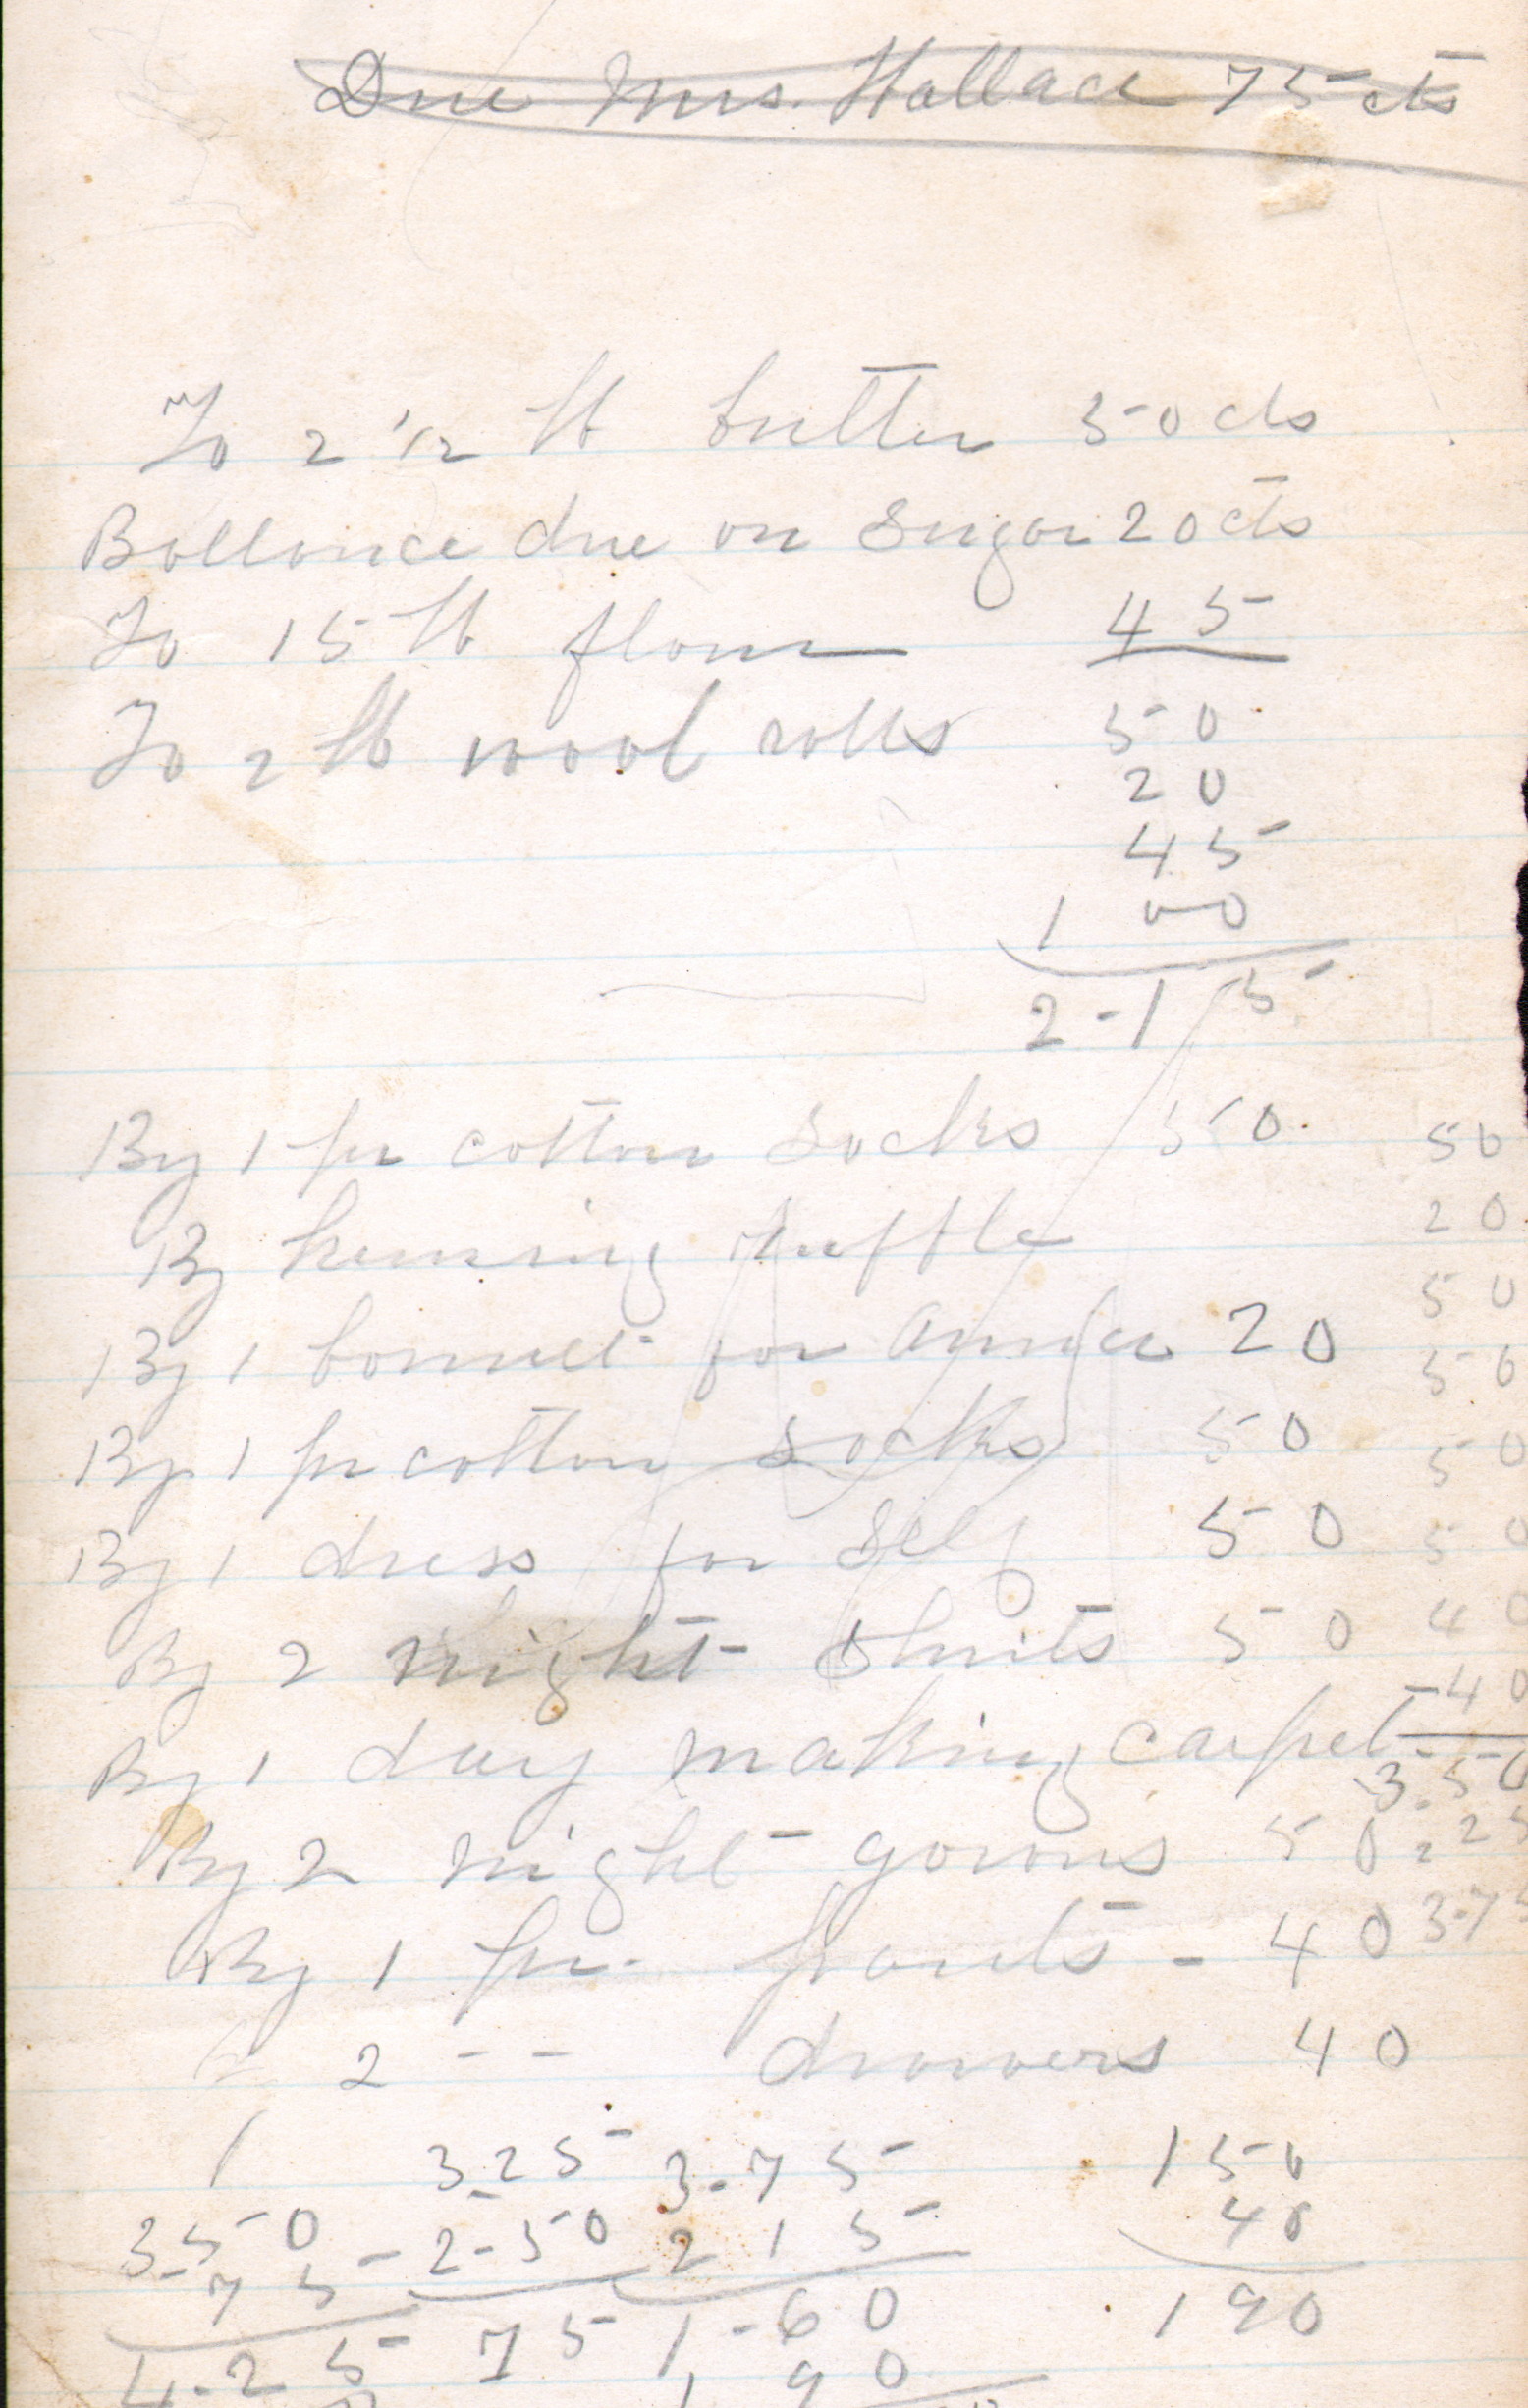 Due Mrs. Wallace 75 cts
To 2 1/2 lb butter 50 cts
Ballance due on Sugar 20 cts
To 15 lb flour 45
To 2 lb wool rolls 50
20
45
1 00
2-15
By 1 pr cotton socks 50 50
By heming ruffle 20
By 1 bonnet for Annie 20 50
By 1 pr cotton socks 50 50
By 1 dress for self 50 50
50
By 2 night shirts 50 40
40
By 1 day making carpet 3.50
By 2 night gowns 50 .25
By 1 pr. pants - 40 3.75
2 - - drawers 40
1 325 3-75 150
3-50 2-50 2 15 40
75
4-25 75 1-60 190
1 90